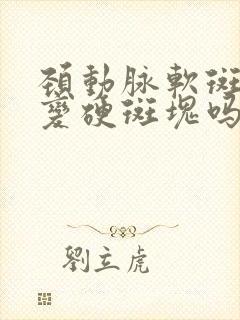 頚動脉軟斑
變硬斑塊吗
劉立虎